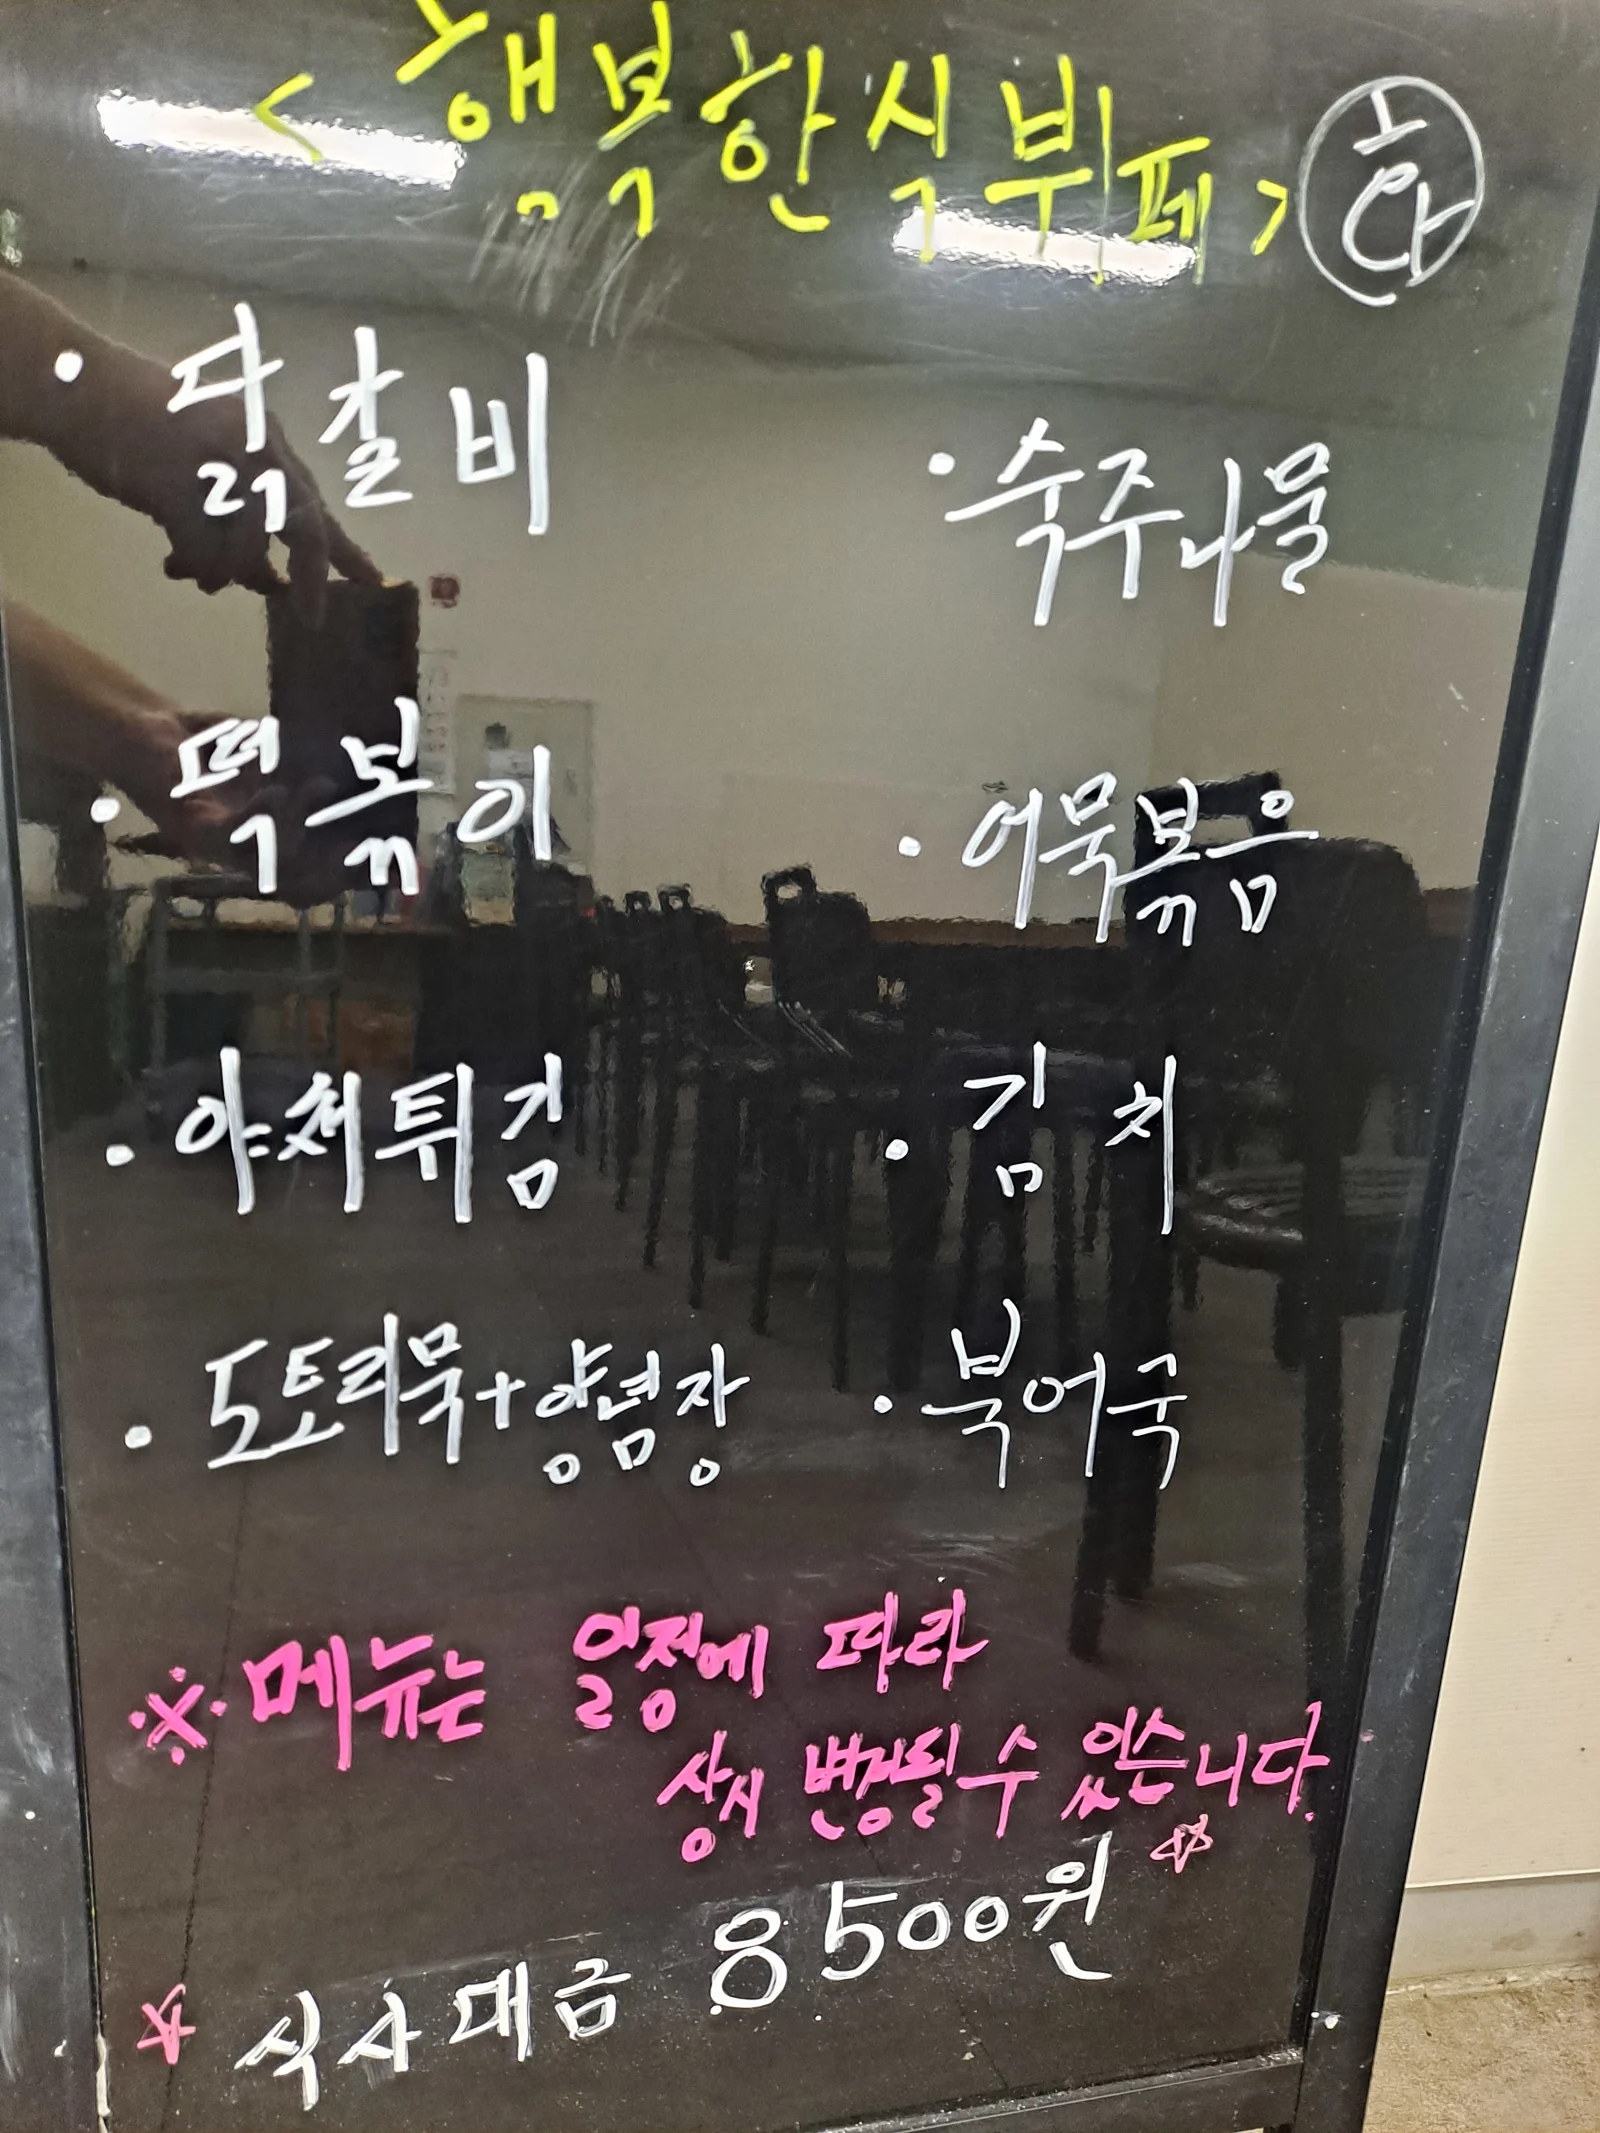 <행복한식뷔페> 화
• 닭갈비
• 숙주나물
• 떡볶이
• 어묵볶음
• 야채튀김
• 김치
• 도토리묵+양념장
• 북어국
※메뉴는 일정에 따라
상시 변경될 수 있습니다.
☆ 식사대금 8500원 ☆